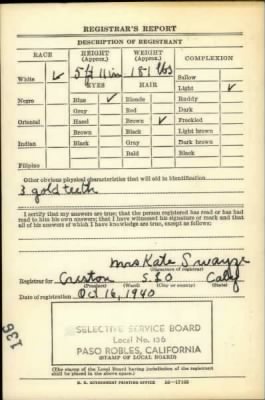 REGISTRAR'S REPORT
DESCRIPTION OF REGISTRANT
RACE
HEIGHT (Approx.)
WEIGHT (Approx.)
COMPLEXION
White ✓
5 ft 11 in
181 lbs
Sallow
EYES
HAIR
Light ✓
Negro
Blue ✓
Blonde
Ruddy
Gray
Red
Dark
Oriental
Hazel
Brown ✓
Freckled
Brown
Black
Light brown
Indian
Black
Gray
Dark brown
Bald
Black
Filipino
Other obvious physical characteristics that will aid in identification
3 gold teeth
I certify that my answers are true; that the person registered has read or has had
read to him his own answers; that I have witnessed his signature or mark and that
all of his answers of which I have knowledge are true, except as follows:
Mrs Kate Swayze
(Signature of registrar)
Registrar for Creston S.L.O Calif
(Precinct) (Ward) (City or county) (State)
Date of registration Oct 16, 1940
SELECTIVE SERVICE BOARD
Local No. 136
PASO ROBLES, CALIFORNIA
(STAMP OF LOCAL BOARD)
(The stamp of the Local Board having jurisdiction of the registrant
shall be placed in the above space.)
U. S. GOVERNMENT PRINTING OFFICE 16-17105
136